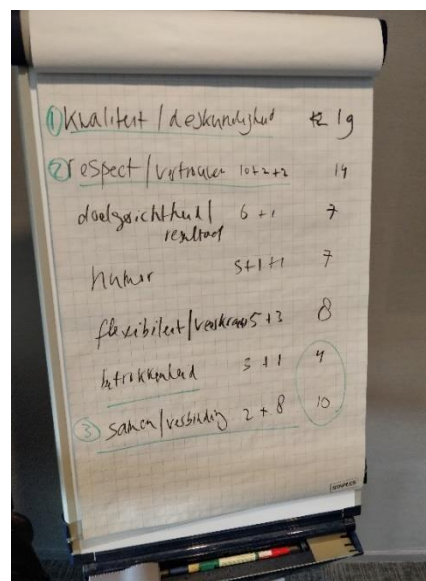 ① Kwaliteit / deskundigheid 19
② respect / vertrouwen 10+2+2 14
doelgerichtheid / 6 +1 7
resultaat
humor 5+1+1 7
flexibiliteit / 5 + 3 8
betrokkenheid 3 +1 4
③ samen / verbinding 2 + 8 10